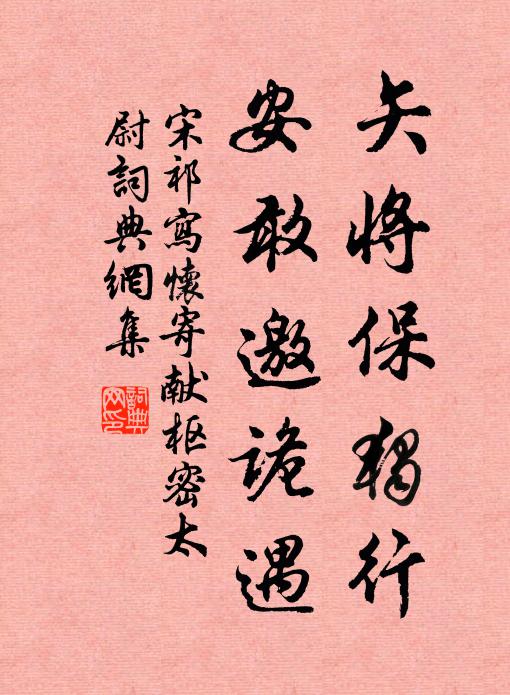 矢将保獨行
安敢邀詭遇
宋祁寫懷寄献枢密太
尉詞典網集
詞典
网印